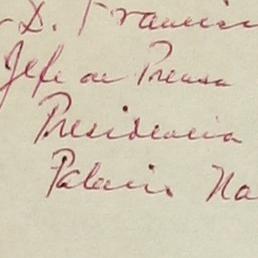 D. Francis
Jefe de Prensa
Presidencia
Palacio Na